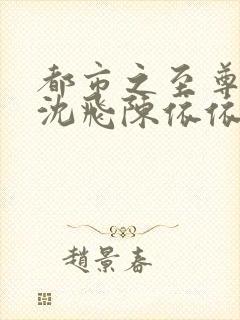 都市之至尊
沈飛陳依依
趙景春